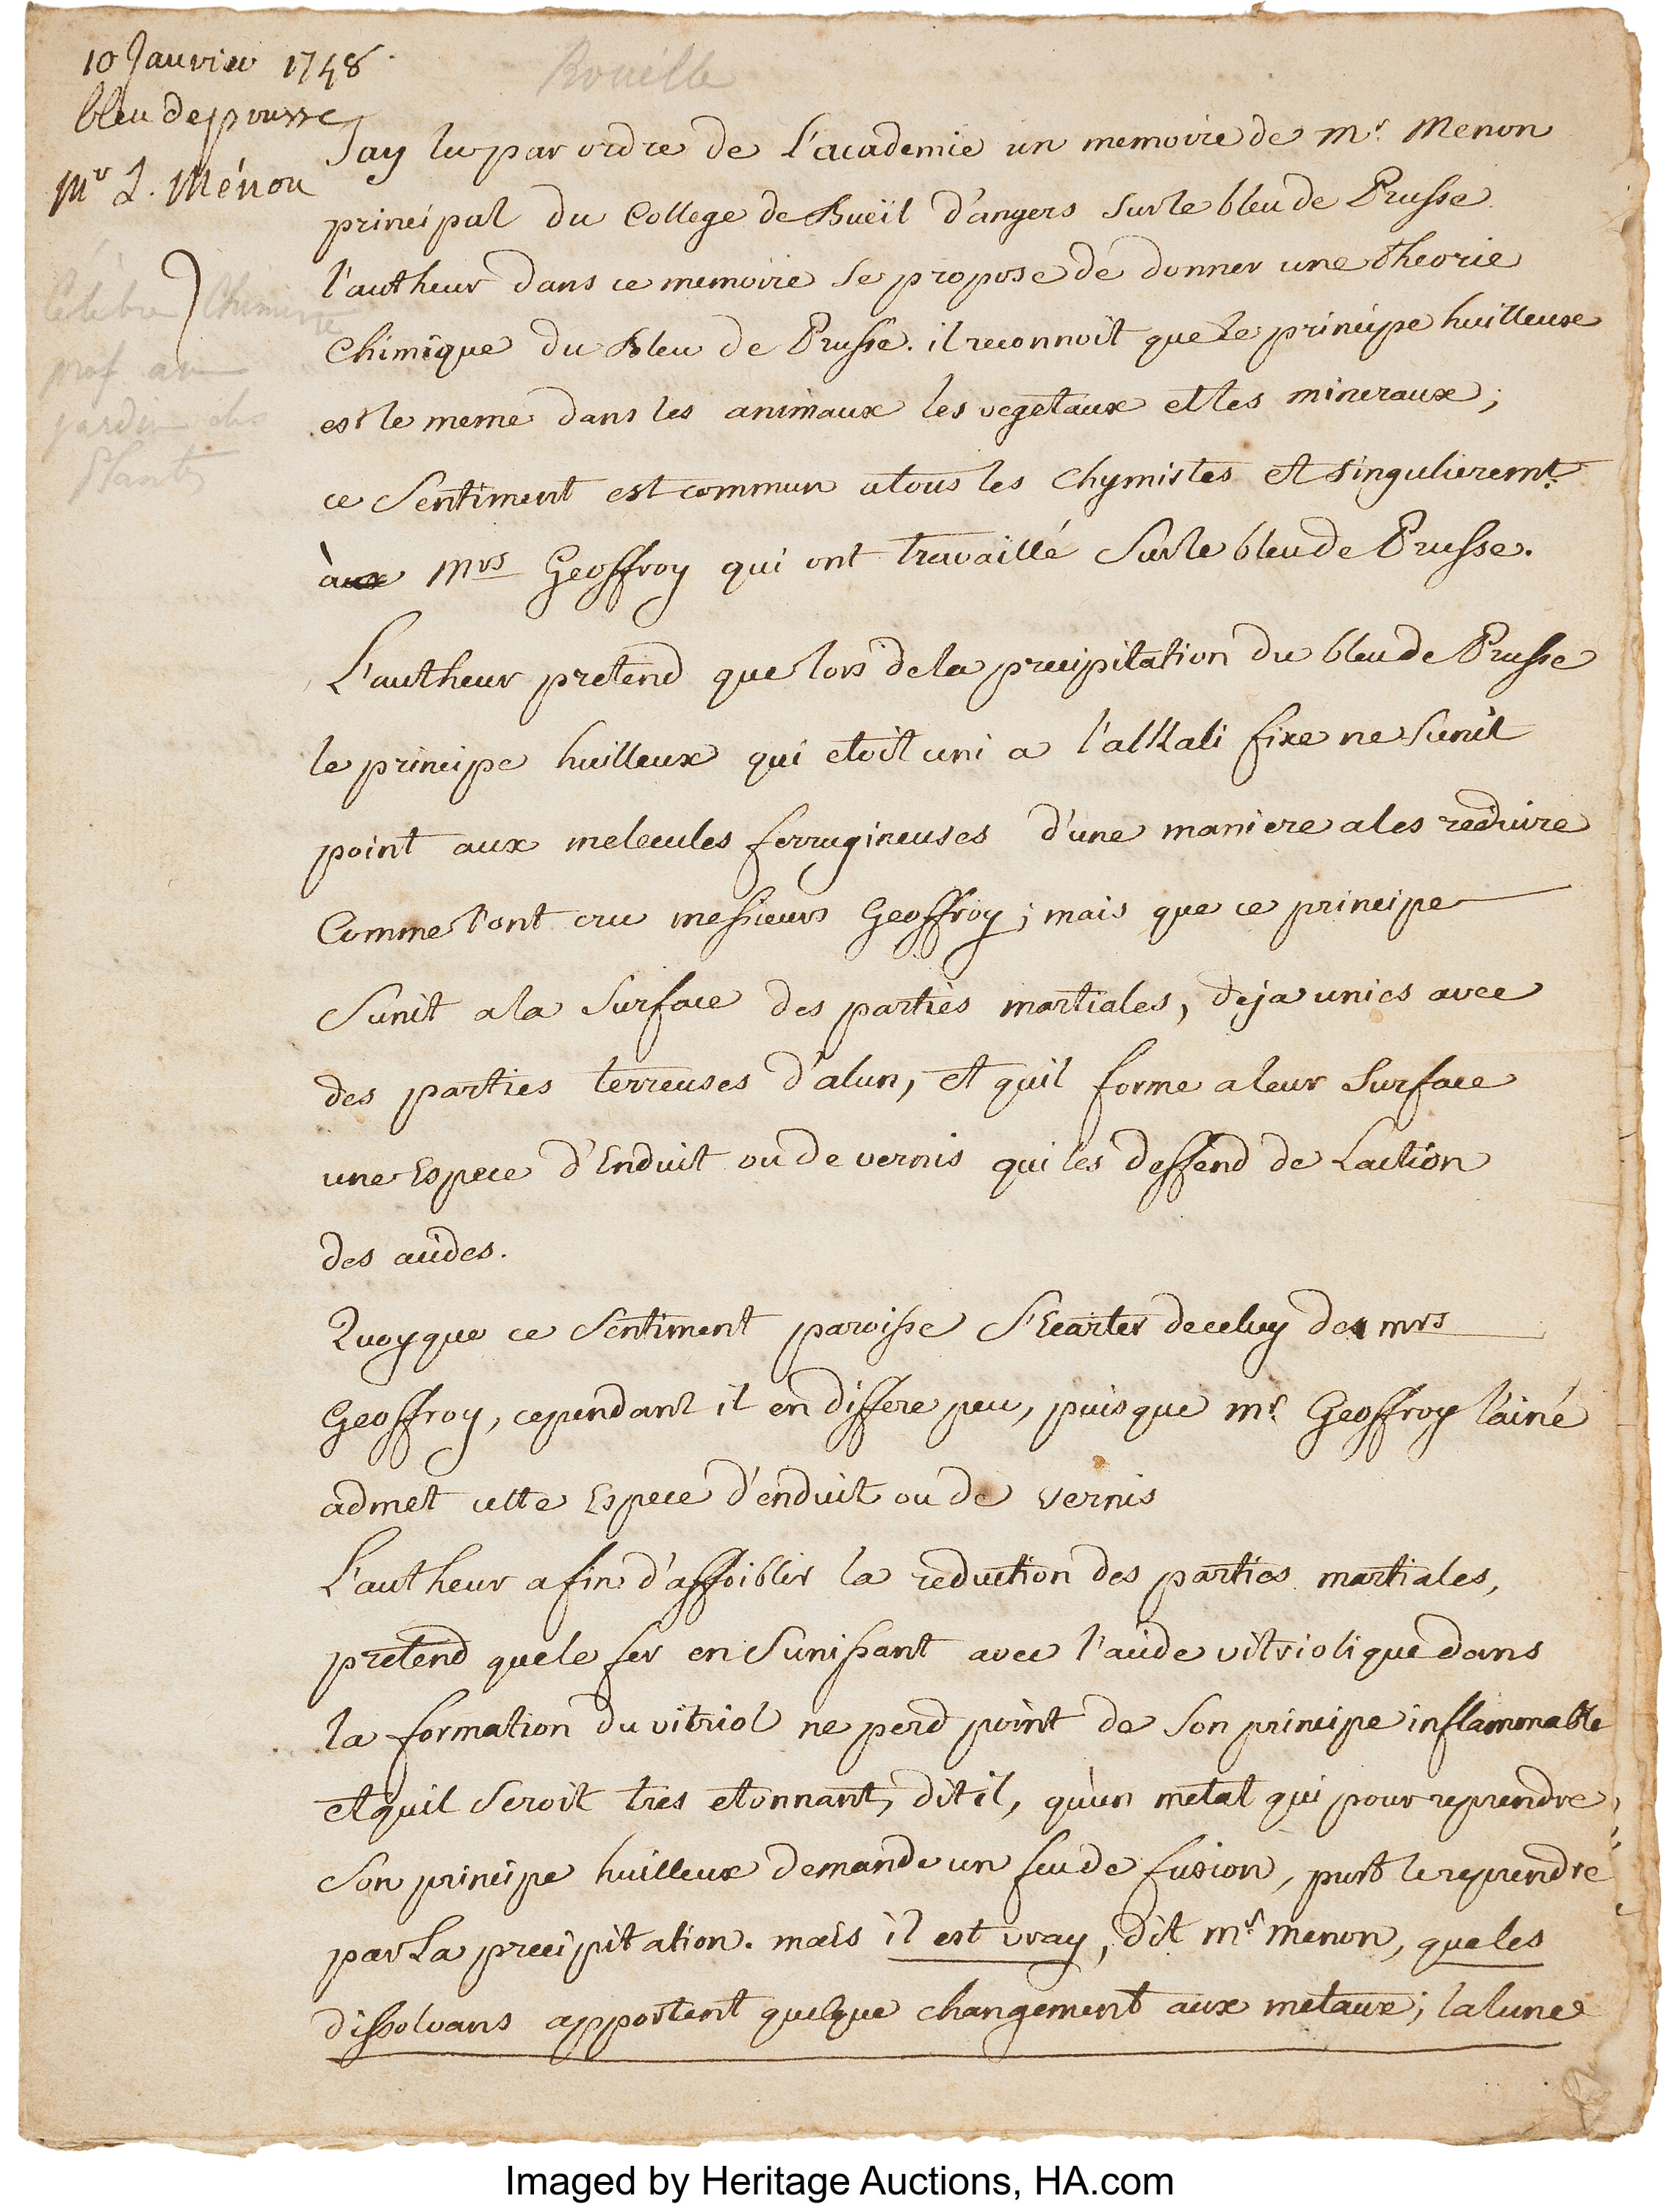 10 Janvier 1748
bleu de prusse
Mr L. Ménon
Rouelle
Célèbre Chimiste
prof au
jardin des
Plantes
Jay lu par ordre de l'academie un memoire de Mr. Menon
principal du College de Bueïl d'angers Sur le bleu de Prusse
l'autheur dans ce memoire se propose de donner une theorie
Chimique du Bleu de Prusse. il reconnoit que le principe huilleux
est le meme dans les animaux les vegetaux et les mineraux ;
ce Sentiment est commun a tous les Chymistes et singulieremt.
à Mrs Geoffroy qui ont travaillé Sur le bleu de Prusse.
L'autheur pretend que lors de la precipitation du bleu de Prusse
le principe huilleux qui etoit uni a l'alkali fixe ne Sunit
point aux melecules ferrugineuses d'une maniere a les reduire
Comme l'ont cru messieurs Geoffroy ; mais que ce principe
Sunit a la Surface des parties martiales, deja unies avec
des parties terreuses d'alun, et quil forme a leur Surface
une Espece d'Enduit ou de vernis qui les deffend de Laction
des acides.
Quoyque ce Sentiment paroisse S'Ecarter de celuy des mrs
Geoffroy, cependant il en differe peu, puisque mr Geoffroy l'ainé
admet cette Espece d'enduit ou de vernis
L'autheur afin d'affoiblir la reduction des parties martiales,
pretend que le fer en Sunissant avec l'acide vitriolique dans
la formation du vitriol ne perd point de Son principe inflammable
et quil Seroit tres etonnant, dit il, qu'un metal qui pour reprendre
Son principe huilleux demande un feu de fusion, put le reprendre
par La precipitation. mais il est vray, dit Mr Menon, que les
dissolvans apportent quelque changement aux metaux ; la lune
Imaged by Heritage Auctions, HA.com